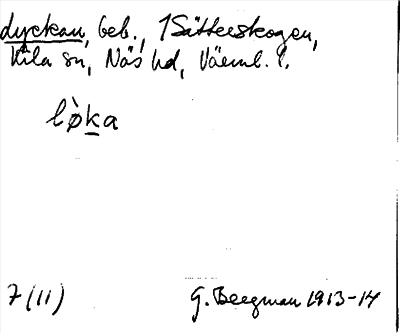 Lyckan, beb., 1Sätterskogen,
Kila sn, Näs hd, Värml. l.
lø̀ka
7 (11)
G. Bergman 1913-14